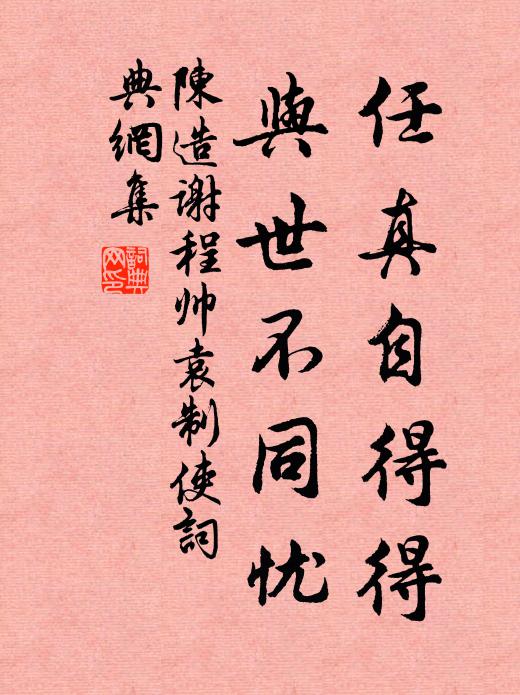 任真自得得
與世不同忧
陳造謝程帅袁制使詞
典網集
詞典
网印